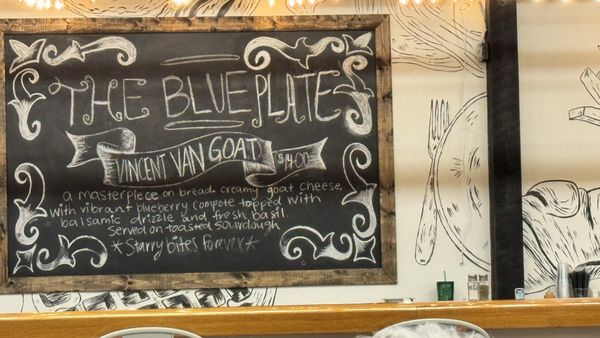 THE BLUE PLATE
VINCENT VAN GOAT $14.00
a masterpiece on bread. creamy goat cheese,
with vibrant blueberry compote topped with
balsamic drizzle and fresh basil.
Served on toasted sourdough
*Starry bites Forever*